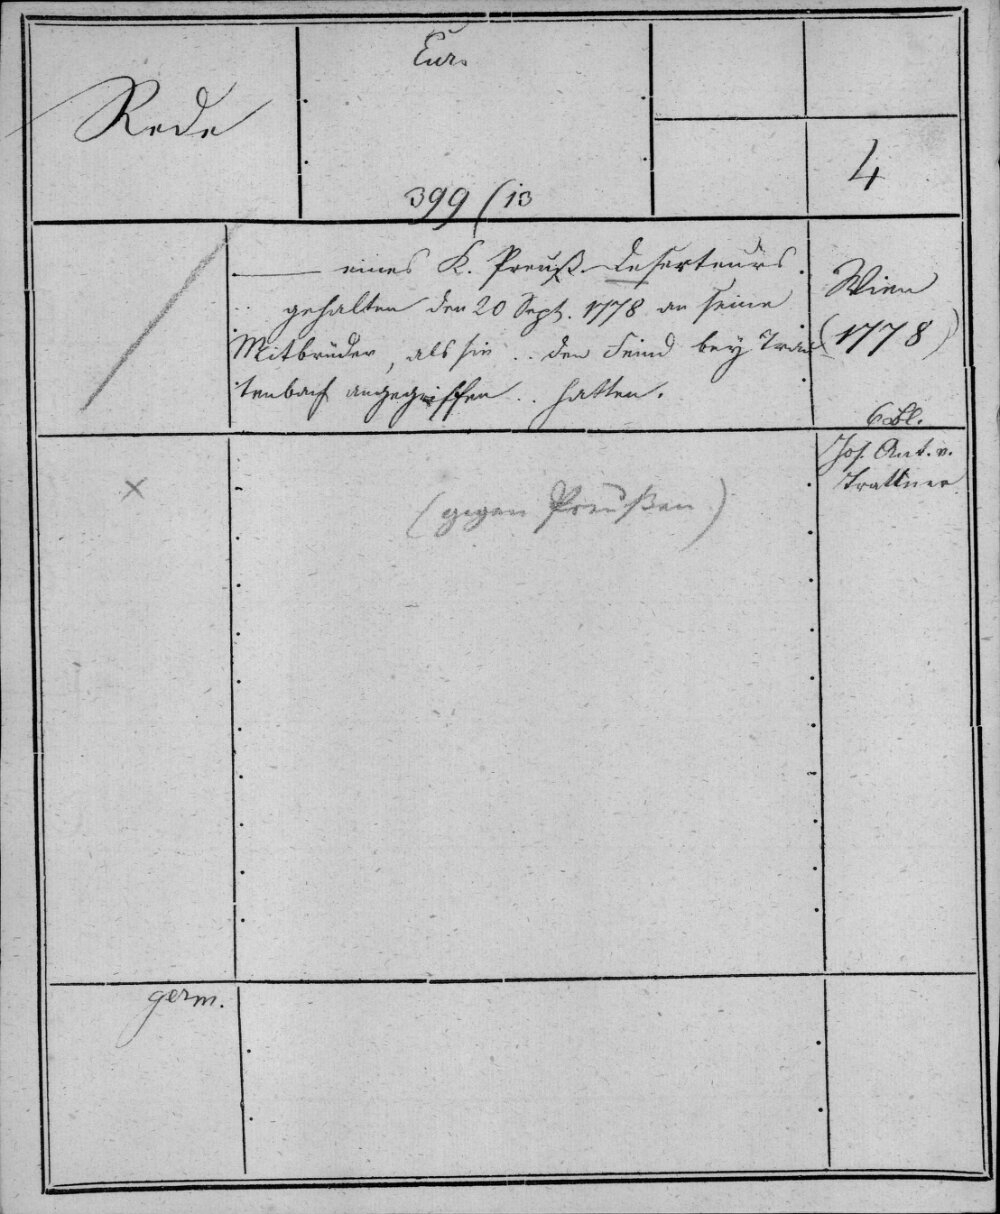 Rede
Eur.
399/13
4
—— eines K. Preuß. Deserteurs.
.. gehalten den 20 Sept. 1778 an seine
Mitbrüder, als sie .. den Feind bey Trau
tenbach angegriffen .. hatten.
Wien
(1778)
6 Bl.
Jos. Ant. v.
Trattner
×
(gegen Preußen)
germ.